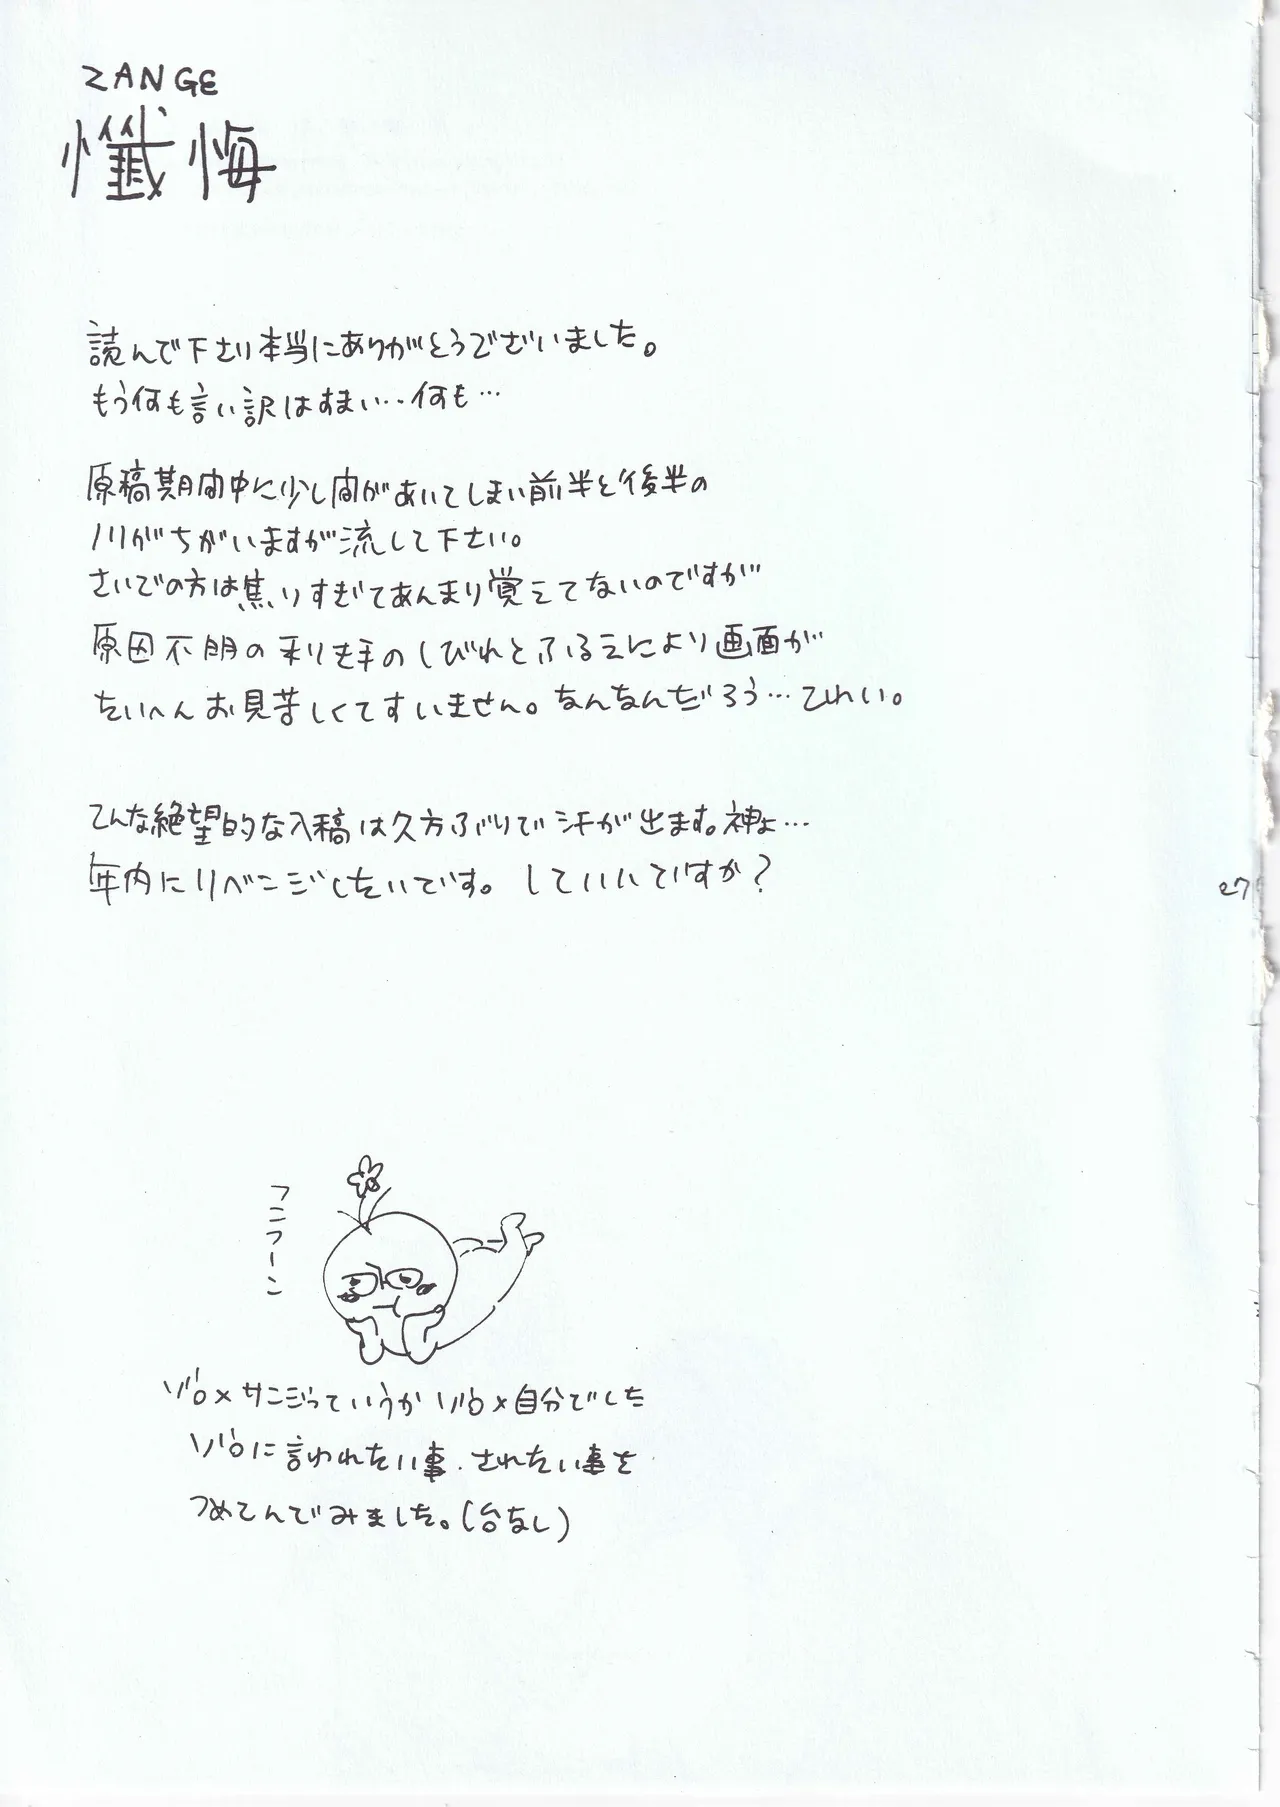 ZANGE
懺悔
読んで下さり本当にありがとうございました。
もう何も言い訳はすまい‥何も…
原稿期間中に少し間があいてしまい前半と後半の
ノリがちがいますが流して下さい。
さいごの方は焦りすぎてあんまり覚えてないのですが
原因不明の利き手のしびれとふるえにより画面が
たいへんお見苦しくてすいません。なんなんだろう…ひれい。
こんな絶望的な入稿は久方ぶりで汗が出ます。神よ…
年内にリベンジしたいです。していいですか?
27
フニフーン
ゾロ×サンジっていうかゾロ×自分でした
ゾロに言われたい事.されたい事を
つめこんでみました。(台なし)